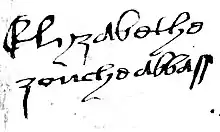 Elyzabethe
zouche abbass